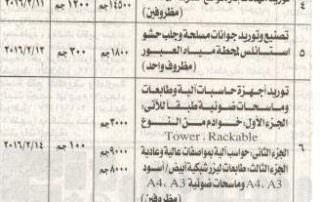 ٤ (مظروفين) ١٤٥٠٠جم ١٢٠٠ جم ٢٠١٦/٢/١١
تصنيع وتوريد جوانات مسلحة وجلب حشو
استانلس لمحطة مياه العبور
(مظروف واحد)
٥ ١٨٠٠جم ٣٠٠ جم ٢٠١٦/٢/١٣
توريد أجهزة حاسبات آلية وطابعات
وماسحات ضوئية طبقاً للآتى:
الجزء الأول: خوادم من النوع
Tower، Rackable
الجزء الثانى: حواسب آلية بمواصفات عالية وعادية
الجزء الثالث: طابعات ليزر شبكية أبيض/ أسود
A4، A3 وماسحات ضوئية A4، A3
(مظروفين)
٦ ٣٠٠٠جم
٩٠٠٠جم
٨٠٠٠جم
١٠٠ جم ٢٠١٦/٢/١٤